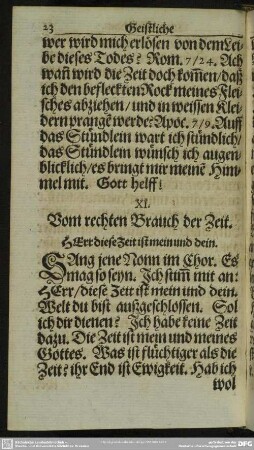 23 Geistliche
wer wird mich erlösen von dem Lei-
be dieses Todes? Rom. 7/24. Ach
wañ wird die Zeit doch kom̃en/daß
ich den befleckten Rock meines Flei-
sches abziehen/und in weissen Klei-
dern prangẽ werde? Apoc. 7/9. Auff
das Stündlein wart ich stündlich/
das Stündlein wünsch ich augen-
blicklich/es bringt mir meinẽ Him-
mel mit. Gott helff!
XI.
Vom rechten Brauch der Zeit.
HErr diese Zeit ist mein und dein.
SAng jene Nonn im Chor. Es
mag so seyn. Ich stim̃ mit an:
HErr/diese Zeit ist mein und dein.
Welt du bist außgeschlossen. Sol
ich dir dienen? Ich habe keine Zeit
dazu. Die Zeit ist mein und meines
Gottes. Was ist flüchtiger als die
Zeit? ihr End ist Ewigkeit. Hab ich
wol
DFG